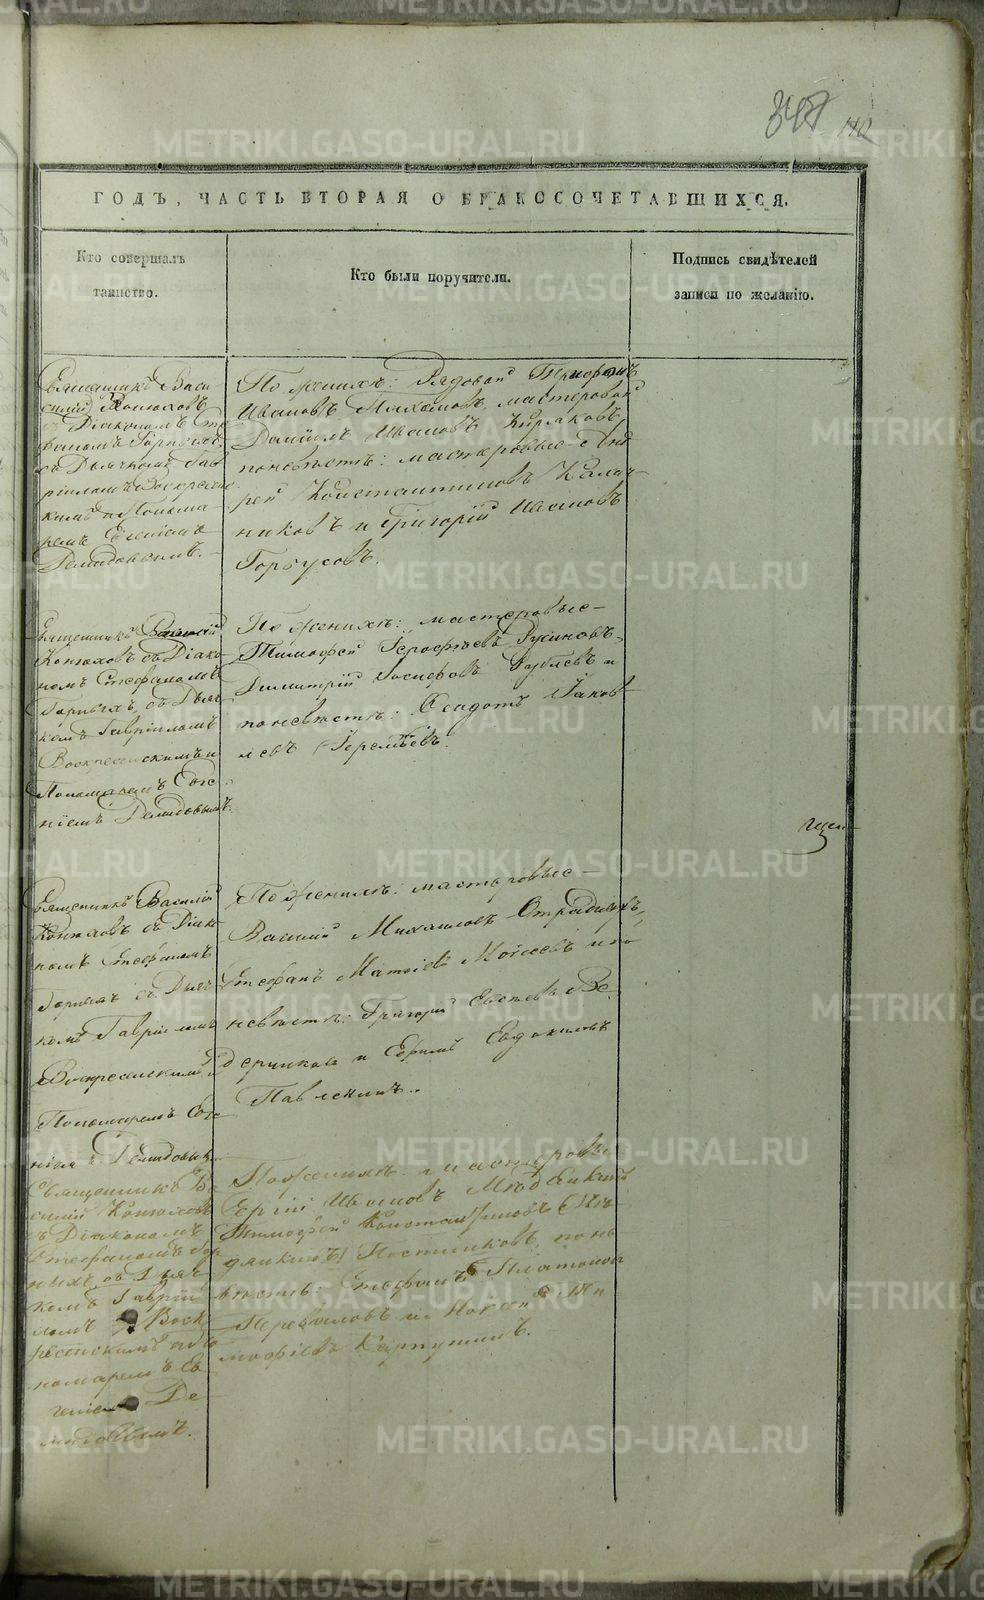 347
140
ГОДЪ, ЧАСТЬ ВТОРАЯ О БРАКОСОЧЕТАВШИХСЯ.
Кто совершалъ
таинство.
Кто были поручители.
Подпись свидѣтелей
записи по желанію.
Священникъ Васи
лій Конюховъ
съ Діакономъ Сте
фаномъ Горныхъ
съ Дьячкомъ Гав
ріиломъ Воскресенс
кимъ и Понома
ремъ Евгеніемъ
Демидовымъ.
По женихѣ: Рядовой Трифонъ
Ивановъ Пахомовъ, мастеровой
Даніилъ Ивановъ Кирпковъ
по невѣстѣ: мастеровые Анд
рей Константиновъ Калаш
никовъ и Григорій Ивановъ
Горбусовъ.
Священникъ Василій
Конюховъ съ Діако
номъ Стефаномъ
Горныхъ, съ Дьяч
комъ Гавріиломъ
Воскресенскимъ и
Пономаремъ Евге
ніемъ Демидовымъ.
По женихѣ: мастеровые
Тимофей Ерофѣевъ Русиновъ,
Димитрій Іосифовъ Рублевъ и
по невѣстѣ: Ѳедотъ Яков
левъ Еремѣевъ.
щен
Священникъ Василій
Конюховъ съ Діако
номъ Стефаномъ
Горныхъ съ Дьяч
комъ Гавріиломъ
Воскресенскимъ и
Пономаремъ Евге
ніемъ Демидовым
По женихѣ: мастеровые
Василій Михаиловъ
Стефанъ Матвіевъ Моисеевъ и по
невѣстѣ: Григорій Евсѣевъ Ве
дерниковъ и Ефимъ Евдокимовъ
Павленинъ.
Священникъ Ва
силій Конюховъ
съ Діакономъ
Стефаномъ Гор
ныхъ, съ Дьяч
комъ Гаврі
ломъ Воск
ресенскимъ и По
номаремъ Ев
геніемъ Де
мидовымъ.
По женихѣ: мастеровые
Сергій Ивановъ
Тимофей Константиновъ
Постниковъ, по не
вѣстѣ: Стефанъ Платоновъ
Переваловъ и Моисей Ти
мофіевъ Карпушинъ.
METRIKI.GASO-URAL.RU